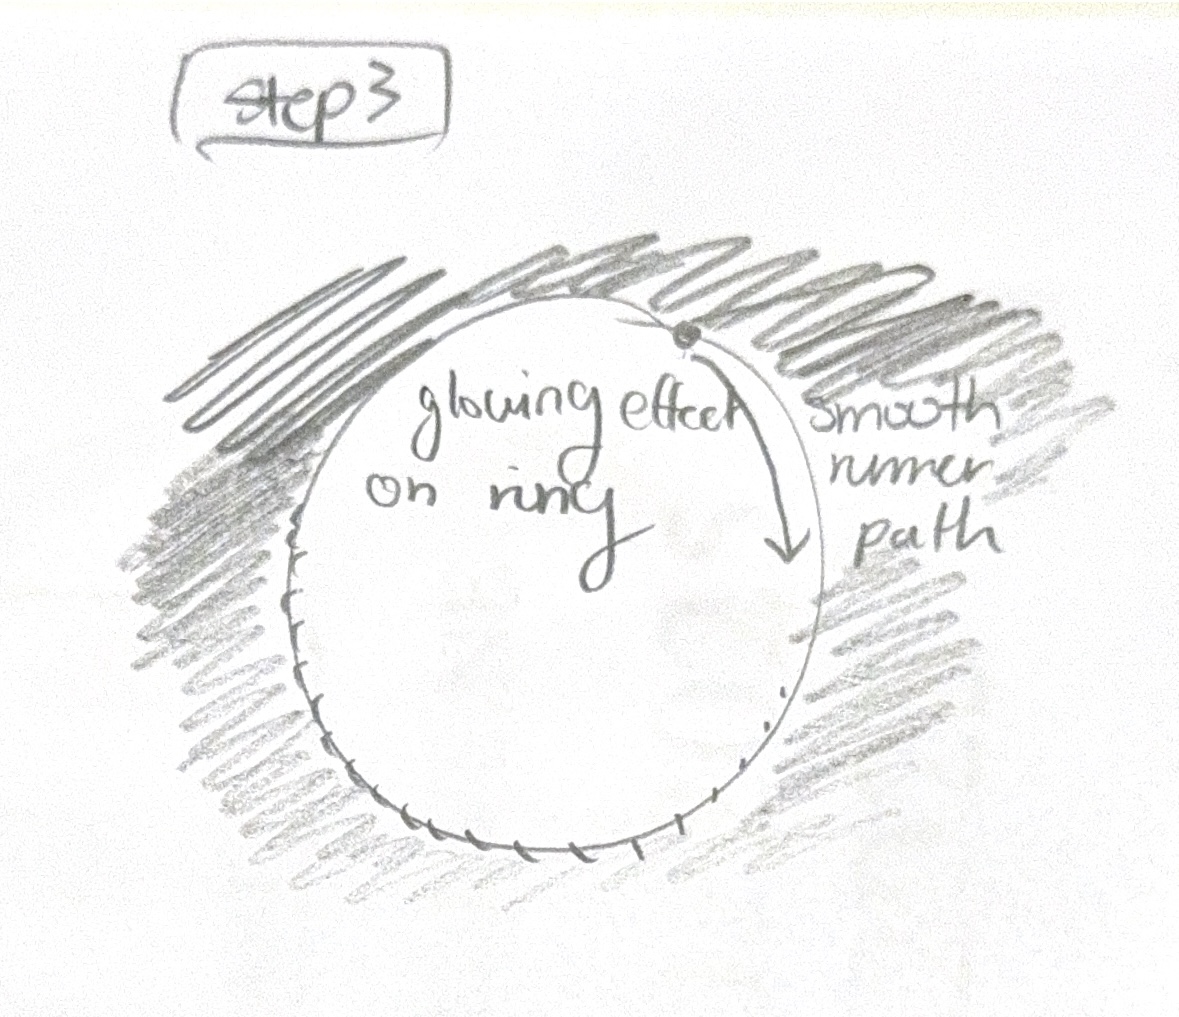 step 3
glowing effect
on ring
smooth
runner
path